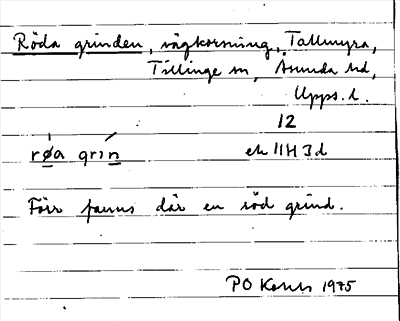 Röda grinden, vägkorsning, Tallmyra,
Tillinge sn, Åsunda hd,
Upps. l.
12
røa grın
ek 11H 3d
Förr fanns där en röd grind.
PO 1975